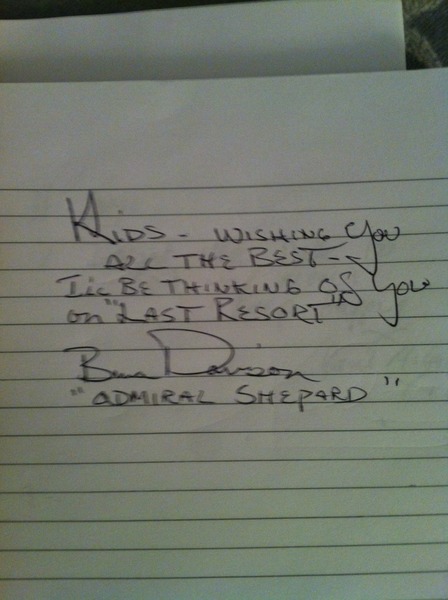 KIDS - WISHING YOU
ALL THE BEST -
I'LL BE THINKING OF YOU
ON "LAST RESORT"
Bruce Davison
"ADMIRAL SHEPARD"